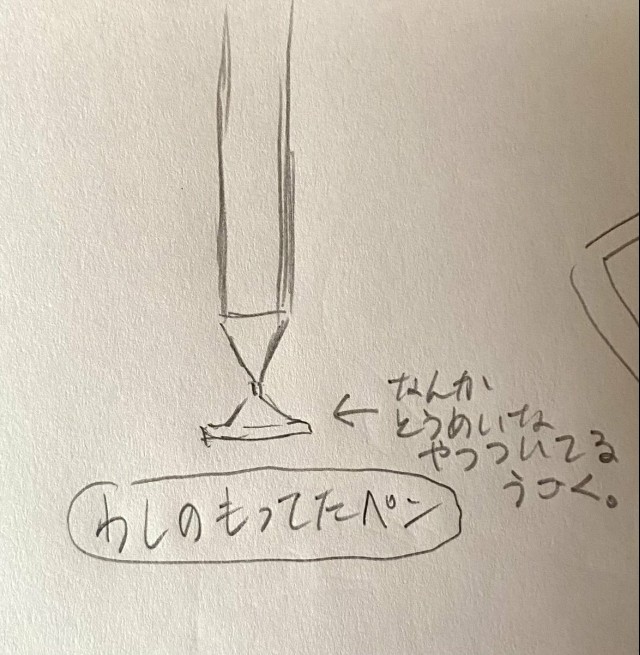 なんか
とうめいな
やつついてる
うごく。
わしのもってたペン